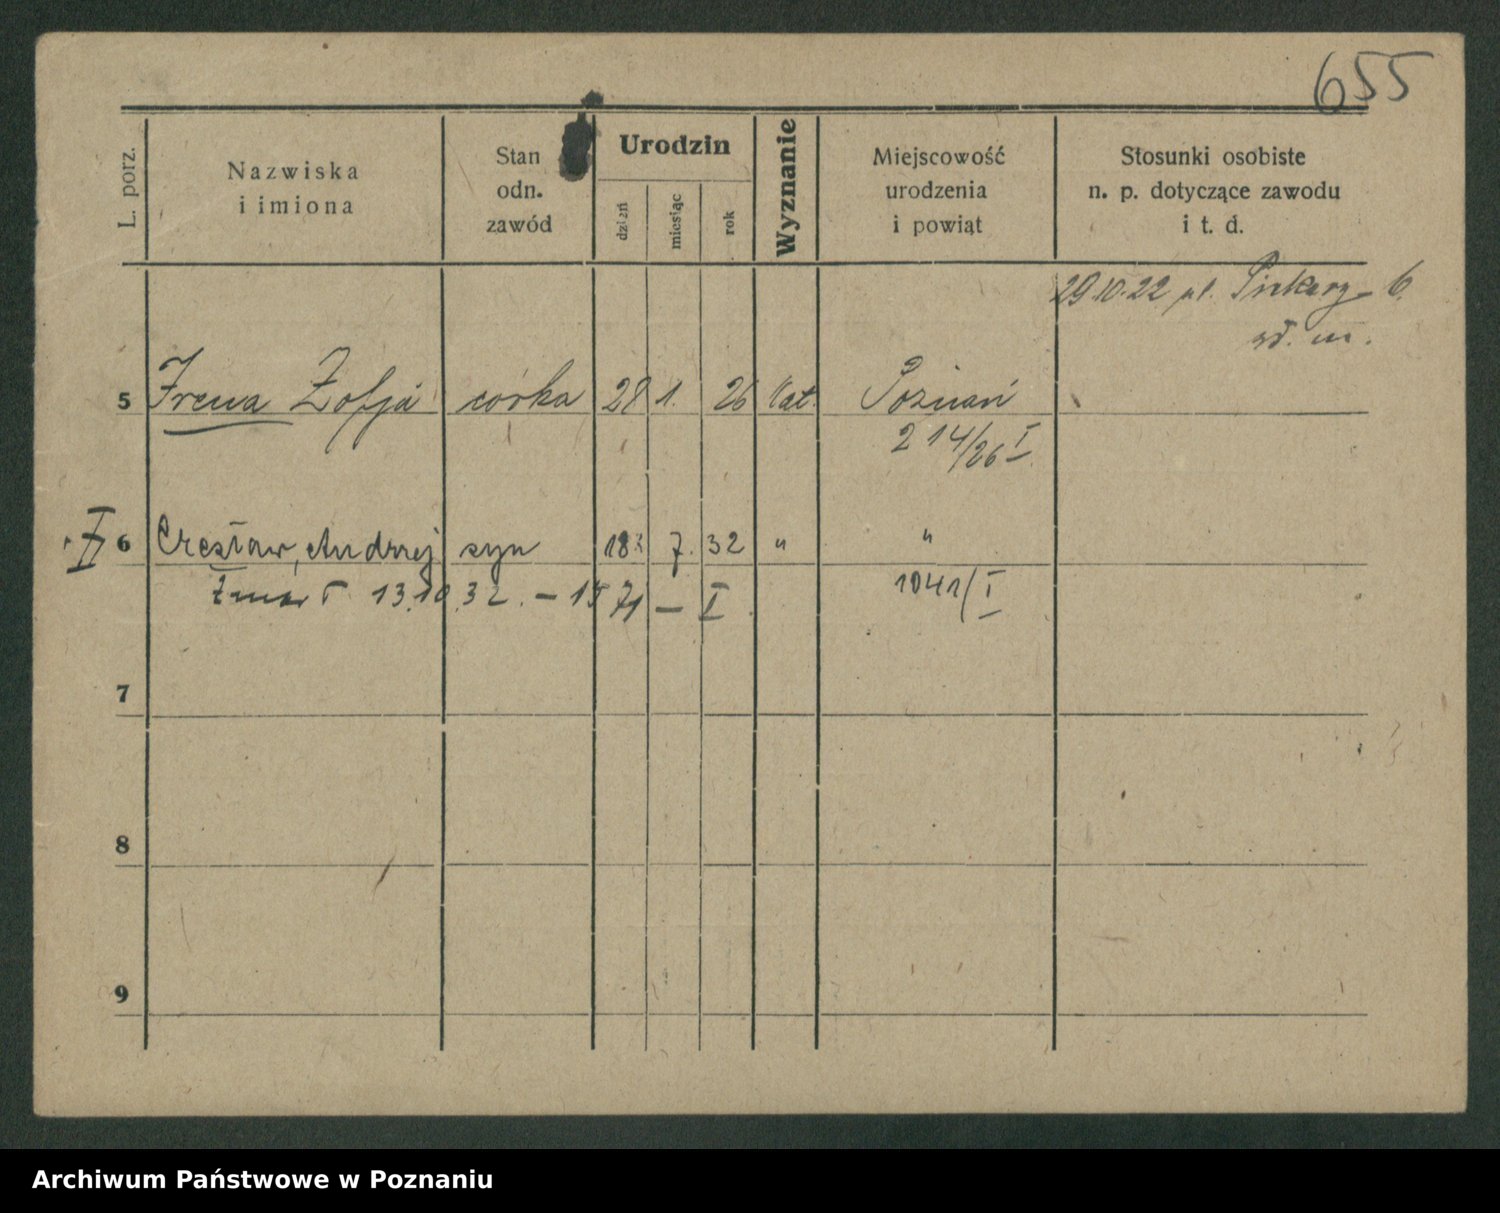 655
L. porz.
Nazwiska
i imiona
Stan
odn.
zawód
Urodzin
dzień
miesiąc
rok
Wyznanie
Miejscowość
urodzenia
i powiąt
Stosunki osobiste
n. p. dotyczące zawodu
i t. d.
29.10.22 pl. Piekary 6
5 Irena Zofja córka 28 1. 26 kat. Poznań
214/26 I
6 Czesław, Andrzej syn 18 7. 32 " "
Zmarł 13.10.32. – 1571 – I
1041/I
7
8
9
Archiwum Państwowe w Poznaniu